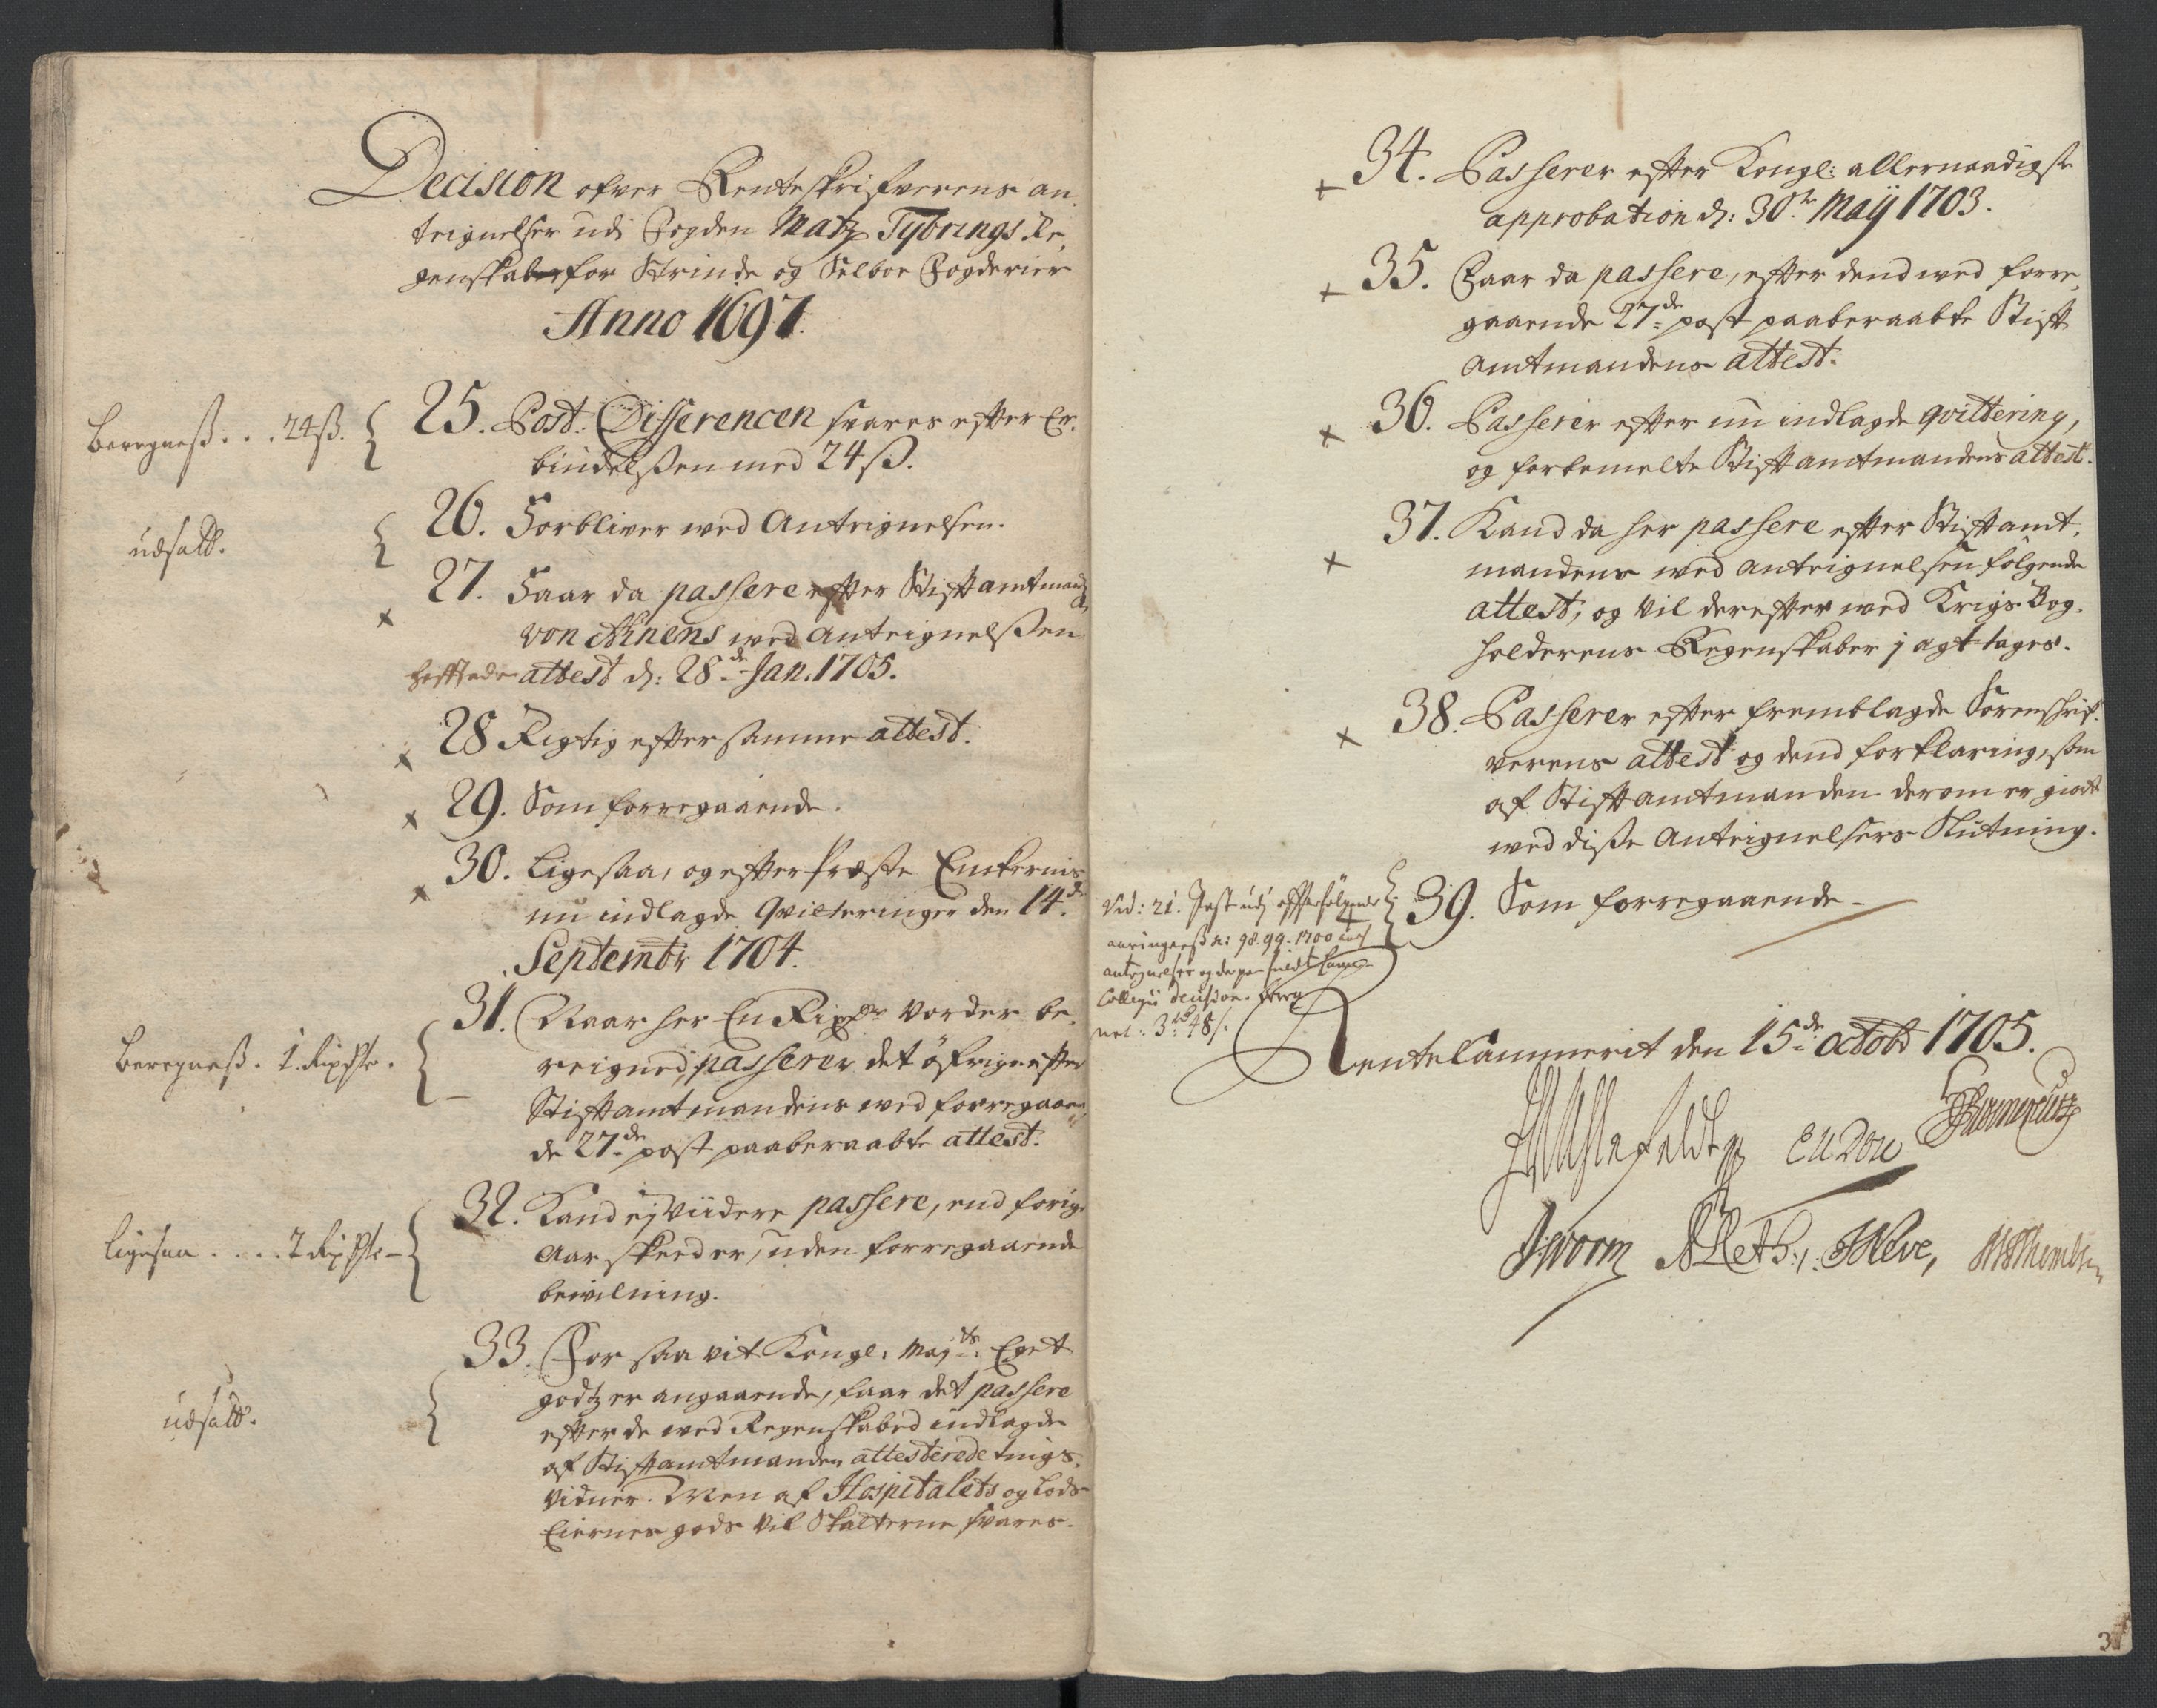 Decision ofver Renteskrifverens an-
teignelser udi Fogden Matz Tybrings Re-
genskab for Strinde og Selboe Fogderier
Anno 1697.
Beregneß . . . 24 ß.
25. Post. Differencen svares efter Er-
bindelßen med 24 ß.
udsatt.
26. Forbliver ved Anteignelsen.
27. Faar da passere efter Stiftamtmand
von Ahnens ved anteignelßen
heftede attest d: 28de Jan. 1705.
28 Rigtig efter samme attest.
29. Som forregaaende.
30. Ligesaa, og efter Præste Enckernis
nu indlagde qvitteringer den 14de
Septembr 1704.
Beregneß . 1. Rixdlr .
31. Naar her En Rixdr vorder be-
reigned, passerer det öfrige efter
Stiftamtmandens ved forregaaen-
de 27de post paaberaabte attest.
Ligesaa . . . . 2 Rixdlr
32. Kand ej viidere passere, end forige
Aar skeed er, uden forregaaende
bevilning.
udsatt.
33. For saa vit Kongl. Mayts: Eget
godtz er angaaende, faar det passere
efter de ved Regenskabed indlagde
af Stiftamtmanden attesterede tings-
vidner. Men af Hospitalets og Lods-
Eiernes gods vil Skatterne svares.
34. Passerer efter Kongl: allernaadigste
approbation d: 30te Maij 1703.
35. Faar da passere, efter dend ved forre-
gaaende 27de post paaberaabte Stift
amtmandens attest.
36. Passerer efter nu indlagde qvittering,
og forbemelte Stiftamtmandens attest.
37. Kand da her passere efter Stiftamt-
mandens ved anteignelsen følgende
attest, og vil derefter ved Krigs Bog-
holderens Regenskaber j agt tages.
38. Passerer efter fremblagde Sorenskrif-
verens attest og dend forklaring, som
af Stiftamtmanden derom er giort
ved disse Anteignelsers Slutning.
Vid: 21. Post udj efterfölgende
aaringers 98. 99. 1700
antegnelser og der paa
Collegii decision.
net: 3 rd 48 ß.
39. Som forregaaende.
RenteCammerit den 15de octobr 1705.
Worm Meve,
3